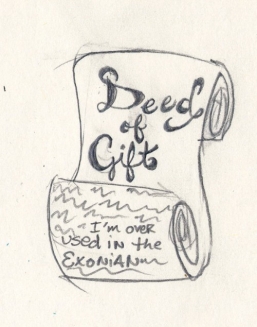 Deed
of
Gift
I'm over
used in the
EXONIAN